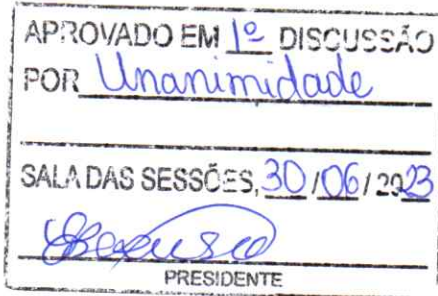 APROVADO EM 1º DISCUSSÃO
POR Unanimidade
SALA DAS SESSÕES, 30/06/2023
PRESIDENTE